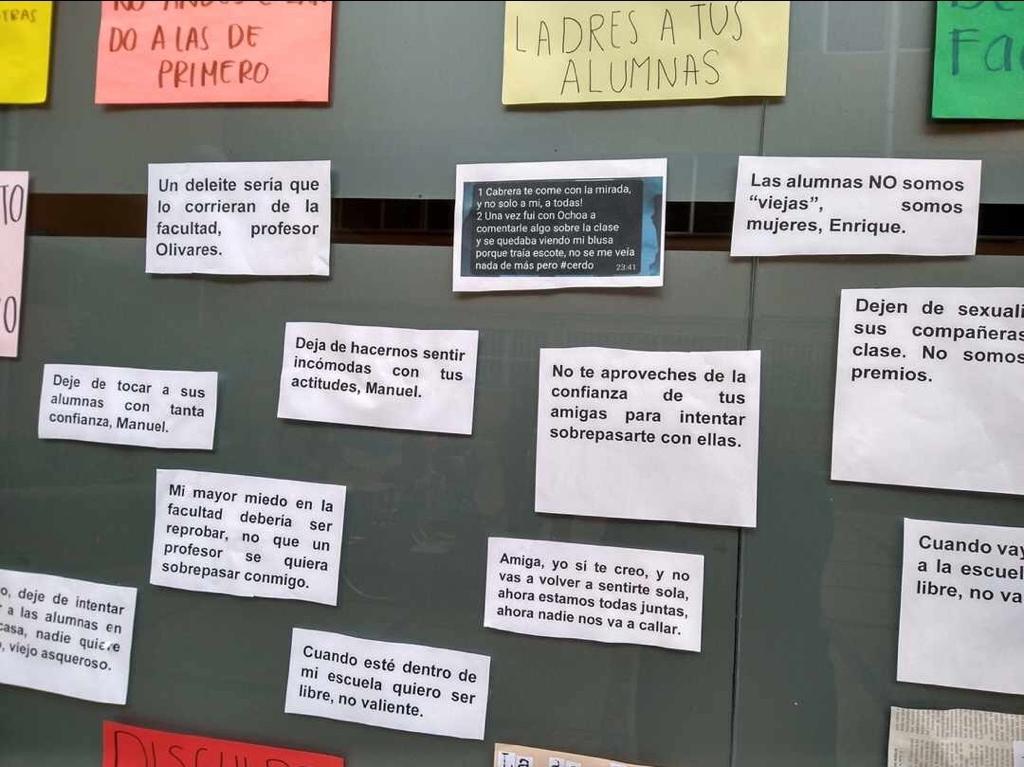 TRAS
DO A LAS DE
PRIMERO
LADRES A TUS
ALUMNAS
Fac
Un deleite sería que
lo corrieran de la
facultad, profesor
Olivares.
1 Cabrera te come con la mirada,
y no solo a mi, a todas!
2 Una vez fui con Ochoa a
comentarle algo sobre la clase
y se quedaba viendo mi blusa
porque traía escote, no se me veía
nada de más pero #cerdo
23:41
Las alumnas NO somos
“viejas”, somos
mujeres, Enrique.
TO
O
Deje de tocar a sus
alumnas con tanta
confianza, Manuel.
Deja de hacernos sentir
incómodas con tus
actitudes, Manuel.
No te aproveches de la
confianza de tus
amigas para intentar
sobrepasarte con ellas.
Dejen de sexuali
sus compañeras
clase. No somos
premios.
Mi mayor miedo en la
facultad debería ser
reprobar, no que un
profesor se quiera
sobrepasar conmigo.
Amiga, yo si te creo, y no
vas a volver a sentirte sola,
ahora estamos todas juntas,
ahora nadie nos va a callar.
Cuando vay
a la escuel
libre, no va
o, deje de intentar
r a las alumnas en
casa, nadie quiere
, viejo asqueroso.
Cuando esté dentro de
mi escuela quiero ser
libre, no valiente.
DISCULP